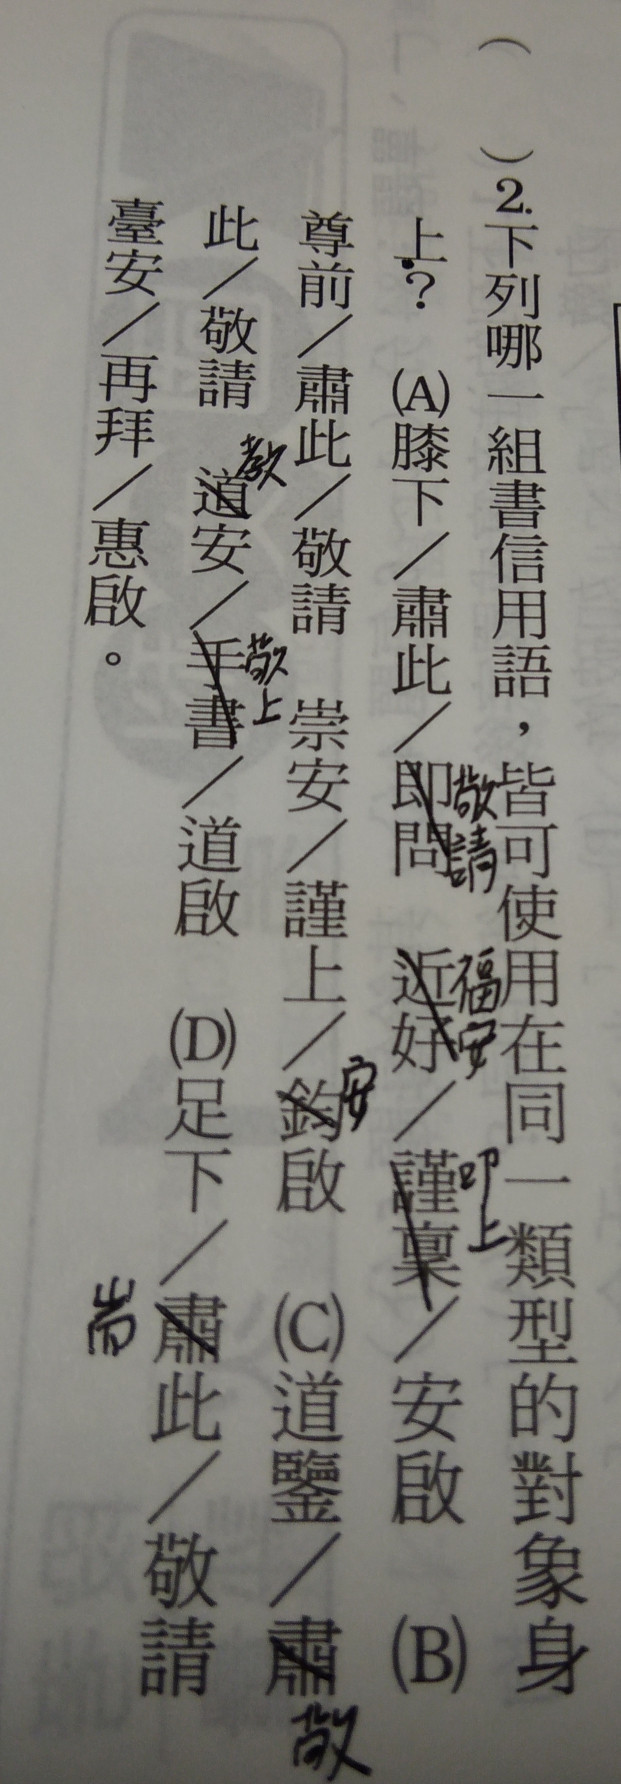 （　）2.下列哪一組書信用語，皆可使用在同一類型的對象身
上？　(A)膝下／肅此／即問　近好／謹稟／安啟　(B)
敬請
福安
叩上
尊前／肅此／敬請　崇安／謹上／鈞啟　(C)道鑒／肅
安
敬
此／敬請　道安／手書／道啟　(D)足下／肅此／敬請
教
敬上
耑
臺安／再拜／惠啟。